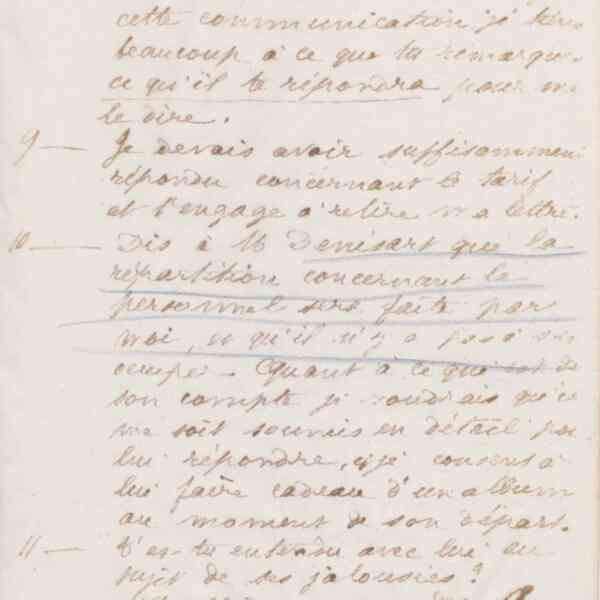 cette communication je tiens
beaucoup à ce que tu remarque
ce qu'il te répondra pour me
le dire.
9 — Je devais avoir suffisamment
répondu concernant le tarif
et t'engage à relire ma lettre.
10 — Dis à M Denisart que la
répartition concernant le
personnel sera faite par
moi, qu'il n'y a pas à s'en
occuper. Quant à ce qui est de
son compte je voudrais qu'il
me soit soumis en détail pour
lui répondre, je consens à
lui faire cadeau d'un album
au moment de son départ.
11 — t'es-tu entendu avec lui au
sujet de ses jalousies ?